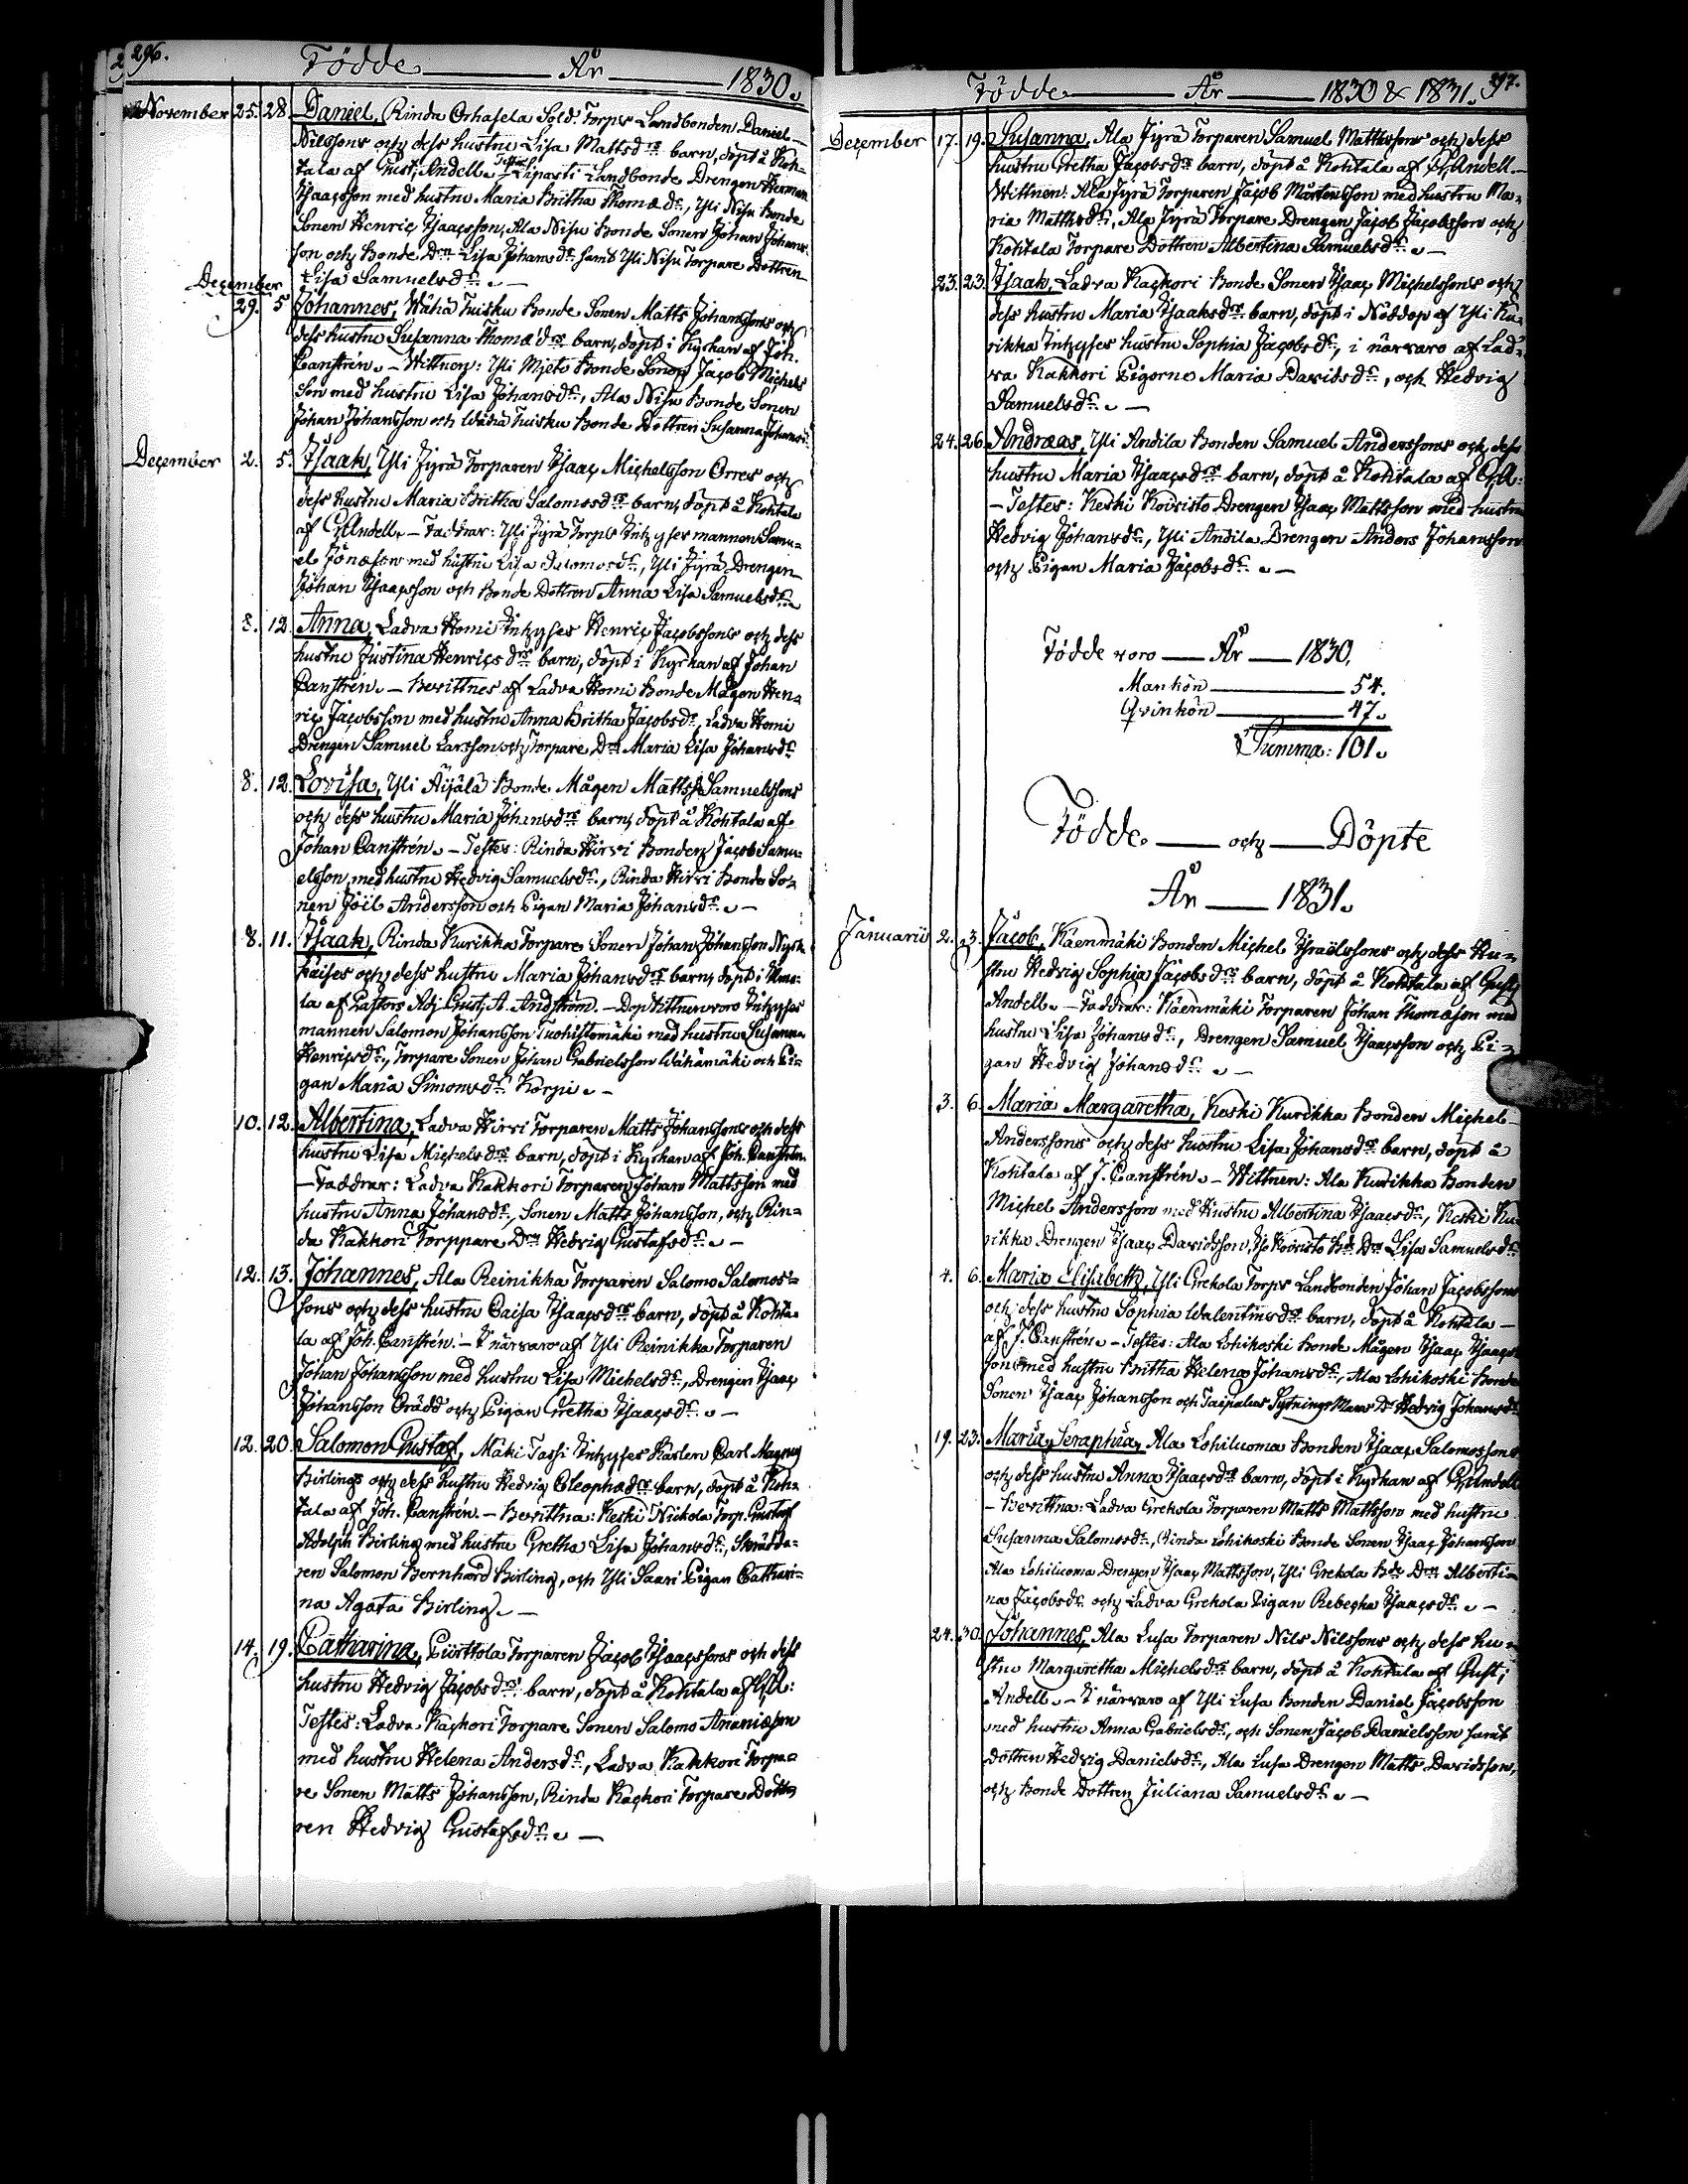 296.
Födde — År — 1830.
November 25. 28. Daniel, Rinda Orhasela Sold: Torps Landbonden Daniel
Nilssons och dess hustru Lisa Mattsdrs barn, döpt å Koh-
tala af Gust: Andell. Testes: Liparsti Landbonde Drengen Herman
Isaacsson med hustru Maria Britha Thomædr, Yli Nisu Bonde
Sonen Henric Isaacsson, Ala Nisu Bonde Sonen Johan Johans-
son och Bonde Drn Lisa Johansdr samt Yli Nisu Torpare Dottren
Lisa Samuelsdr. —
December
29. 5 Johannes, Wähä Tuisku Bonde Sonen Matts Johanssons och
dess hustru Susanna Thomædrs barn, döpt i Kyrkan af Joh.
Canstrén. — Wittnen: Yli Mjeto Bonde Sonen Jacob Michels
son med hustru Lisa Johansdr, Ala Nisu Bonde Sonen
Johan Johansson och Wähä Tuisku Bonde Dottren Susanna Johansd.
December 2. 5. Isaak, Yli Jyrä Torparen Isaac Michelsson Orres och
dess hustru Maria Britha Salomosdrs barn, döpt å Kohtala
af G. Andell. — Faddrar: Yli Jyrä Torps Inhyses mannen Samu-
el Jonæson med hustru Lisa Salomosdr, Yli Jyrä Drengen
Johan Isaacsson och Bonde Dottren Anna Lisa Samuelsdr.
8. 12. Anna, Ladva Homi Inhyses Henric Jacobssons och dess
hustru Justina Henricsdrs barn, döpt i Kyrkan af Johan
Canstrén. — Bevittnes af Ladva Homi Bonde Mågen Hen-
ric Jacobsson med hustru Anna Britha Jacobsdr, Ladva Homi
Drengen Samuel Larsson och Torpare Drn Maria Lisa Johansdr
8. 12. Lovisa, Yli Äijälä Bonde Mågen Matts Samuelssons
och dess hustru Maria Johansdrs barn, döpt å Kohtala af
Johan Canstrén. — Testes: Rinda Hirvi Bonden Jacob Samu-
elsson med hustru Hedvig Samuelsdr, Rinda Hirvi Bonde So-
nen Joël Andersson och Pigan Maria Johansdr. —
8. 11. Isaak, Rinda Kurikka Torpare Sonen Johan Johansson
och dess hustru Maria Johansdrs barn, döpt i
la af Pastors Adj: Gust: A. Andström. — Dopvittnen voro Inhyses
mannen Salomon Johansson Tuohistomäki med hustru Susanna
Henricsdr, Torpare Sonen Johan Gabrielsson Wähämäki och Pi-
gan Maria Simonsdr Korpi. —
10. 12. Albertina, Ladva Hirvi Torparen Matts Johanssons och dess
hustru Lisa Michelsdrs barn, döpt i Kyrkan af Joh. Canstrén.
— Faddrar: Ladva Kakkori Torparen Johan Mattsson med
hustru Anna Johansdr, Sonen Matts Johansson, och Rin-
da Kakkori Torppare Drn Hedvig Gustafsdr. —
12. 13. Johannes, Ala Reinikka Torparen Salomo Salomos-
sons och dess hustru Caisa Isaacsdrs barn, döpt å Kohta-
la af Joh. Canstrén. — I närvaro af Yli Reinikka Torparen
Johan Johansson med hustru Lisa Michelsdr, Drengen Isaac
Johansson Brädd och Pigan Gretha Isaacsdr. —
12. 20. Salomon Gustaf, Mäki Tassi Inhyses Karlen Carl Magnus
Birlings och dess hustru Hedvig Cleophædrs barn, döpt å Koh-
tala af Joh. Canstrén. — Bevittna: Keski Nickola Torp. Gustaf
Adolph Birling med hustru Gretha Lisa Johansdr, Skrädda-
ren Salomon Bernhard Birling, och Yli Saari Pigan Cathari-
na Agata Birling. —
14. 19. Catharina, Piirttola Torparen Jacob Isaacssons och dess
hustru Hedvig Jacobsdrs barn, döpt å Kohtala af G. A:
Testes: Ladva Kackori Torpare Sonen Salomo Ananiæson
med hustru Helena Andersdr, Ladva Kakkori Torpa-
re Sonen Matts Johansson, Rinda Kackori Torpare Dott
ren Hedvig Gustafsdr. —
297.
Födde — År — 1830 & 1831.
December 17. 19. Susanna, Ala Jyrä Torparen Samuel Matthssons och dess
hustru Gretha Jacobsdrs barn, döpt å Kohtala af G. Andell. —
Wittnen: Ala Jyrä Torparen Jacob Mårtensson med hustru Ma-
ria Matthsdr, Ala Jyrä Torpare Drengen Jacob Jacobsson och
Kohtala Torpare Dottren Albertina Samuelsdr. —
23. 23. Isaak, Ladva Kackori Bonde Sonen Isaac Michelssons och
dess hustru Maria Isaaksdrs barn, döpt i Nöddop af Yli Ku-
rikka Inhyses hustru Sophia Jacobsdr, i närvaro af Lad-
va Kakkori Pigorne Maria Davidsdr, och Hedvig
Samuelsdr. —
24. 26. Andræas, Yli Andila Bonden Samuel Anderssons och dess
hustru Maria Isaacsdrs barn, döpt å Kohtala af G. A:
— Testes: Keski Koivisto Drengen Isaac Mattsson med hustru
Hedvig Johansdr, Yli Andila Drengen Anders Johansson
och Pigan Maria Jacobsdr. —
Födde voro — År — 1830.
Mankön — 54.
Qvinkön — 47.
Summa: 101.
Födde — och — Döpte
År — 1831.
Januarii 2. 3. Jacob, Käenmäki Bonden Michel Israëlssons och dess Hu-
stru Hedvig Sophia Jacobsdrs barn, döpt å Kohtala af Gust:
Andell. — Faddrar: Käenmäki Torparen Johan Thomæson med
hustru Lisa Johansdr, Drengen Samuel Isaacsson och Pi-
gan Hedvig Johansdr. —
3. 6. Maria Margaretha, Keski Kurikka Bonden Michel
Anderssons och dess hustru Lisa Johansdrs barn, döpt å
Kohtala af J. Canstrén. — Wittnen: Ala Kurikka Bonden
Michel Andersson med Hustru Albertina Isaacsdr, Keski Ku-
rikka Drengen Isaac Davidsson, Iso Koivisto Bde Drn Lisa Samuelsdr
4. 6. Maria Elisabeth, Yli Grekola Torps Landbonden Johan Jacobssons
och dess hustru Sophia Walentinsdrs barn, döpt å Kohtala —
af J. Canstrén. — Testes: Ala Lohikoski Bonde Mågen Isaac Isaacs-
son med hustru Britha Helena Johansdr, Ala Lohikoski Bonde
Sonen Isaac Johansson och Taipalus Sytnings Mans Dr Hedvig Johansdr
19. 23. Maria Seraphia, Ala Lohiluoma Bonden Isaac Salomossons
och dess hustru Anna Isaacsdrs barn, döpt i Kyrkan af G. Andell
— Bevittna: Ladva Grekola Torparen Matts Mattsson med hustru
Susanna Salomosdr, Rinda Lohikoski Bonde Sonen Isaac Johansson
Ala Lohiluoma Drengen Isaac Mattsson, Yli Grekola Bde Drn Alberti-
na Jacobsdr och Ladva Grekola Pigan Rebecka Isaacsdr. —
24. 30. Johannes, Ala Lusa Torparen Nils Nilssons och dess hu-
stru Margaretha Michelsdrs barn, döpt å Kohtala af Gust:
Andell. — I närvaro af Yli Lusa Bonden Daniel Jacobsson
med hustru Anna Gabrielsdr, och Sonen Jacob Danielsson samt
dottren Hedvig Danielsdr, Ala Lusa Drengen Matts Davidsson,
och Bonde Dottren Juliana Samuelsdr. —